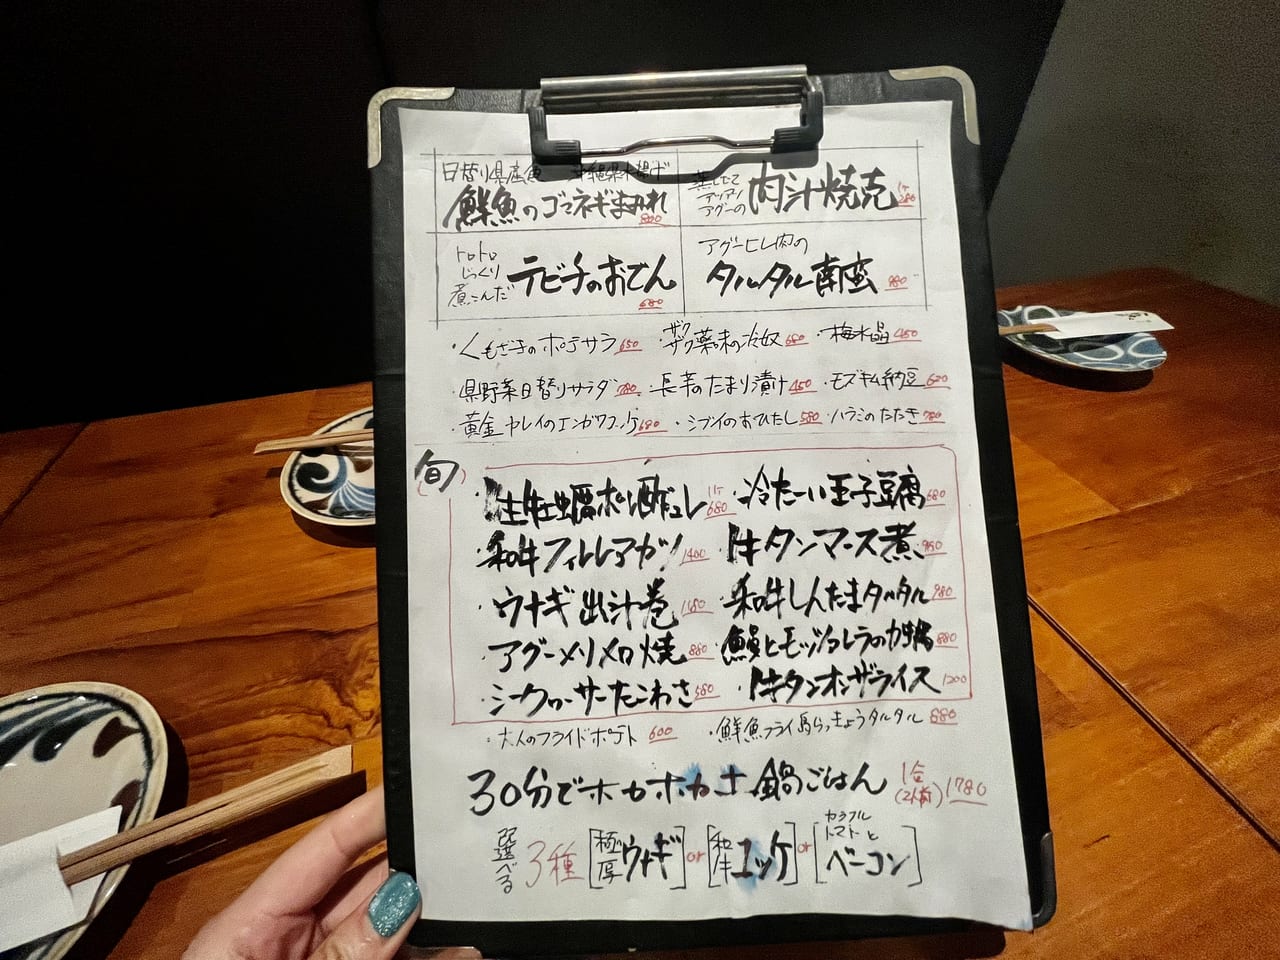 日替り県産魚 沖縄県水揚げ
鮮魚のゴマネギまみれ 800
蒸したて
アツアツ
アグーの
肉汁焼売 1ケ 280
トロトロ
じっくり
煮こんだ
テビチのおでん 680
アグーヒレ肉の
タルタル南蛮 980
・くもざ子のポテサラ 650 ・ザクザク薬味の冷奴 680 ・梅水晶 450
・県野菜日替りサラダ 780 ・長芋のたまり漬け 450 ・モズキム納豆 620
・黄金カレイのエンガワユッケ 680 ・シブイのおひたし 580 ・ハラミのたたき 780
旬
・生牡蠣ポン酢ジュレ 1ケ 680 ・冷たーい玉子豆腐 680
・和牛フィレレアカツ 1400 ・牛タンマース煮 950
・ウナギ出汁巻 1180 ・和牛しんたまタルタル 980
・アグーメリメロ焼 880 ・鰻とモッツァレラの 880
・シークヮーサーたこわさ 580 ・牛タンオンザライス 1200
・大人のフライドポテト 600 ・鮮魚フライ島らっきょうタルタル 880
30分でホカホカ土鍋ごはん 1合(2人前) 1780
選べる 3種 [極厚ウナギ] or [和牛ユッケ] or [カラフルトマトとベーコン]